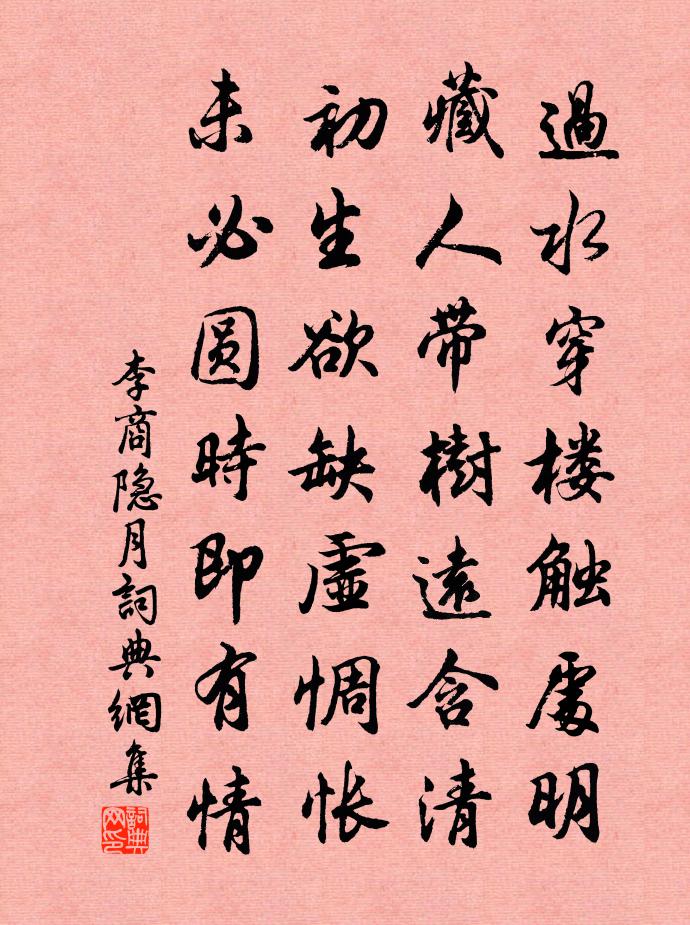 過水穿楼触處明
藏人帶樹遠含清
初生欲缺虛惆怅
未必圆時即有情
李商隐月詞典網集
詞典网印